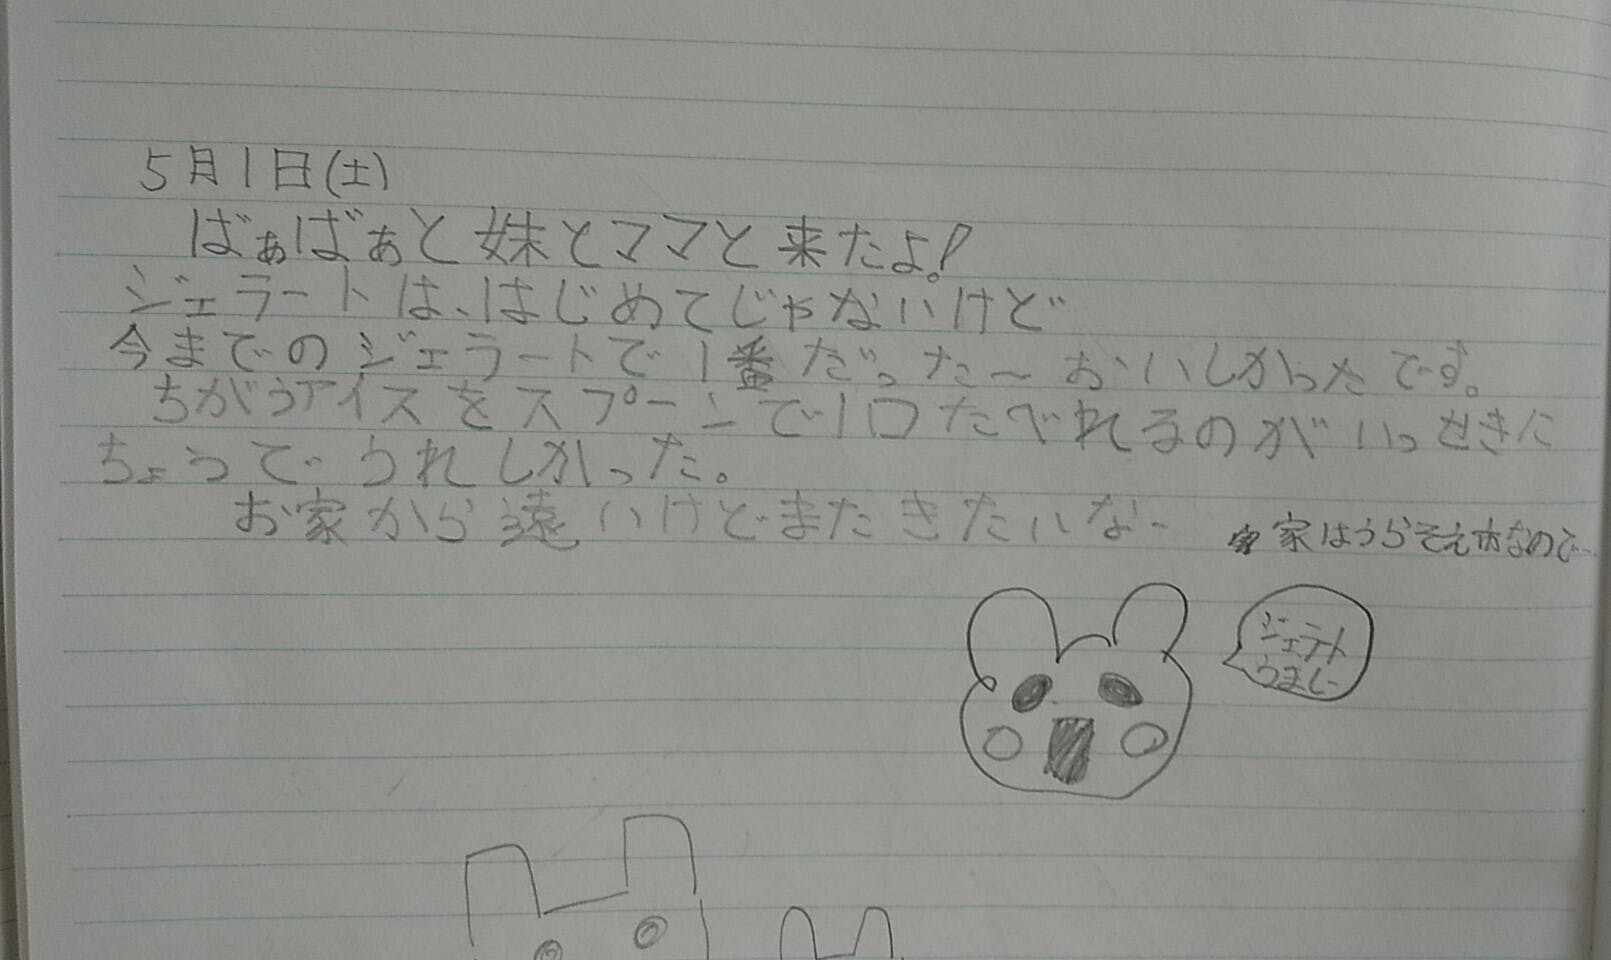 5月1日(土)
ばぁばぁと妹とママと来たよ!
ジェラートは、はじめてじゃないけど
今までのジェラートで1番だった〜おいしかったです。
ちがうアイスをスプーンで1口たべれるのがいっせきに
ちょうでうれしかった。
お家から遠いけどまたきたいなー
家はうらそえ市なので…
ジェラート
うましー